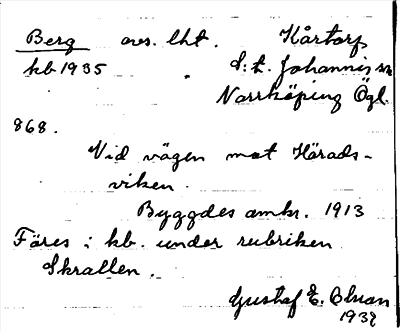 Berg ores. lht. Kårtorp
kb 1935 S:t. Johannis sn
Norrköping Ögl.
868.
Vid vägen mot Hårads-
viken.
Byggdes omkr. 1913
Föres i kb. under rubriken
Skrallen.
Gustaf E.
1932